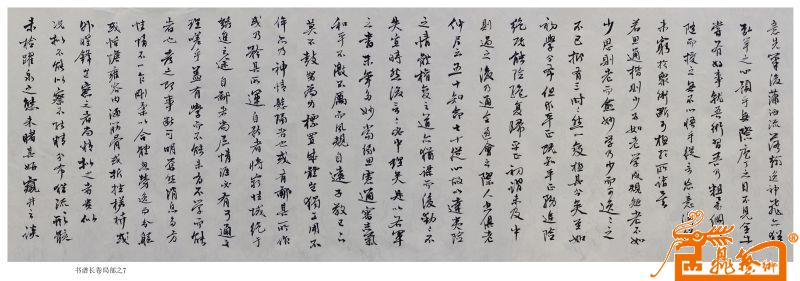 意先筆後瀟灑流落翰逸神飛亦猶
弘羊之心預乎無際庖丁之目不見全牛
嘗有好事就吾求習吾乃粗舉綱要
隨而授之無不心悟手從言忘意得縱
未窮於眾術斷可極於所詣矣
若思通楷則少不如老學成規矩老不如
少思則老而愈妙學乃少而可勉勉之
不已抑有三時時然一變極其分矣至如
初學分布但求平正既知平正務追險
絕既能險絕復歸平正初謂未及中
則過之後乃通會通會之際人書俱老
仲尼云五十知命七十從心故以達夷險
之情體權變之道亦猶謀而後動動不
失宜時然後言言必中理矣是以右軍
之書末年多妙當緣思慮通審志氣
和平不激不厲而風規自遠子敬已下
莫不鼓努為力標置成體豈獨工用不
侔亦乃神情懸隔者也或有鄙其所作
或乃矜其所運自矜者將窮性域絕於
誘進之途自鄙者尚屈情涯必有可通之
理嗟乎蓋有學而不能未有不學而能
者也考之即事斷可明焉然消息多方
性情不一乍剛柔以合體忽勞逸而分驅
或恬憺雍容內涵筋骨或折挫槎枿
外曜鋒芒察之者尚精擬之者貴似
況擬不能似察不能精分布猶疏形骸
未檢躍泉之態未睹其妍窺井之談
书谱长卷局部之7